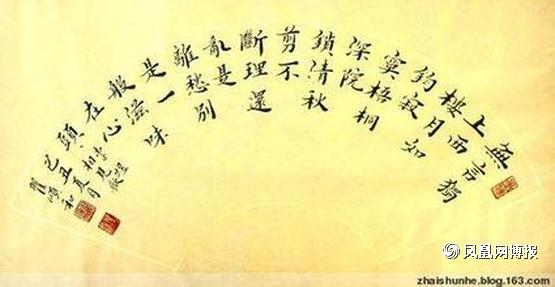 無言獨
上西
樓月如
鈎寂
寞梧桐
深院
鎖清秋
剪不
斷理還
亂是
離愁別
是一
般滋味
在心
頭
李煜
相見歡
己丑夏月
翟順和
凤凰网博报
zhaishunhe.blog.163.com